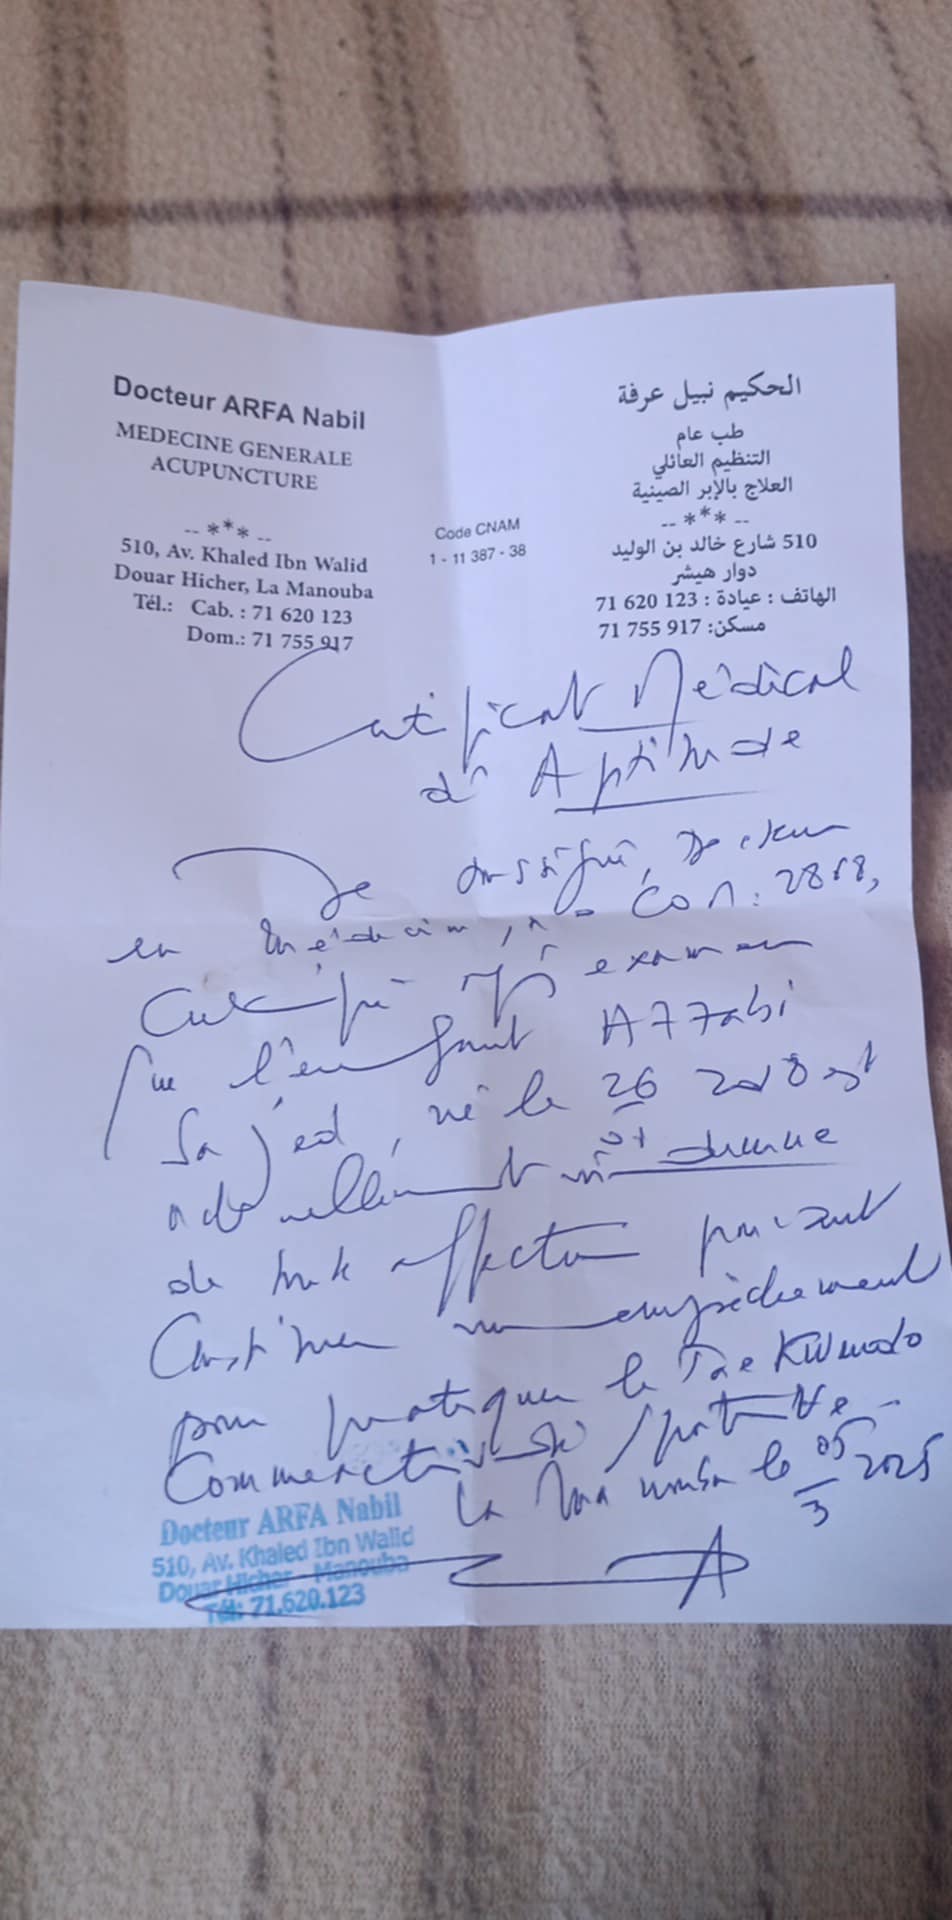 Docteur ARFA Nabil
MEDECINE GENERALE
ACUPUNCTURE
-- *** --
510, Av. Khaled Ibn Walid
Douar Hicher, La Manouba
Tél.: Cab. : 71 620 123
Dom.: 71 755 917
Code CNAM
1 - 11 387 - 38
الحكيم نبيل عرفة
طب عام
التنظيم العائلي
العلاج بالإبر الصينية
-- *** --
510 شارع خالد بن الوليد
دوار هيشر
الهاتف : عيادة : 123 620 71
مسكن: 917 755 71
Certificat Médical
d'Aptitude
Je soussigné, Docteur
en médecine,
Certifie après examen
que l'enfant Azzabi
Sajed, né le 26 2018 est
actuellement indemne
de toute affection pouvant
Constituer un empêchement
pour pratiquer le Tae Kwondo
sportive.
La Manouba le 05
3 2025
Docteur ARFA Nabil
510, Av. Khaled Ibn Walid
Douar Hicher - Manouba
Tél: 71.620.123